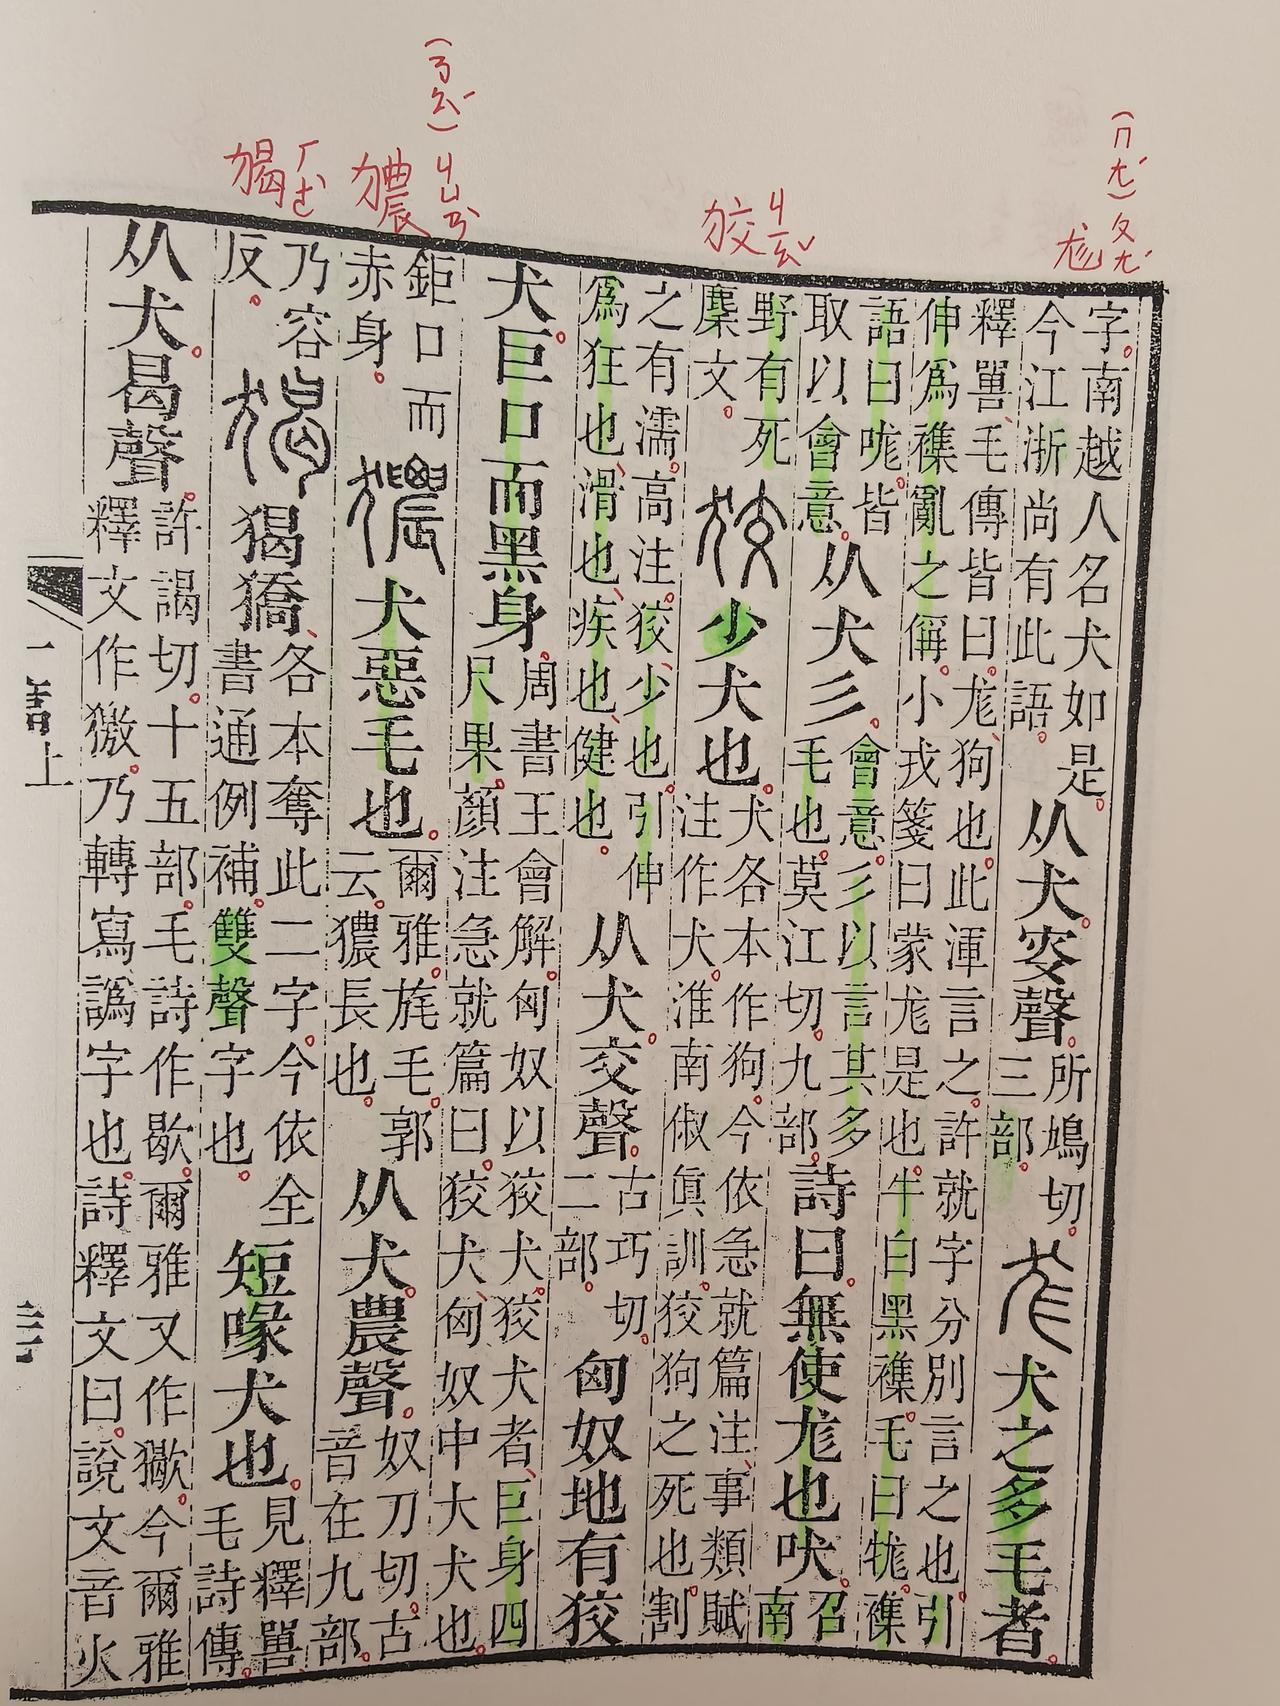 (ㄇㄤˊ)
ㄆㄤˊ
尨
ㄐㄧㄠˇ
狡
(ㄋㄠˊ)
獽
猲
字。南越人名犬如是。
今江浙尚有此語。
从犬叜聲。
所鳩切。
三部。
尨
犬之多毛者。
釋嘼、毛傳皆曰。尨、狗也。此渾言之。許就字分別言之也。引
伸爲襍亂之偁。小戎箋曰蒙尨是也。牛白黑襍毛曰牻。襍
語曰哤。皆
取以會意。
从犬彡。
會意。彡以言其多
毛也。莫江切。九部。
詩曰。無使尨也吠。
召
南
野有死
麇文。
狡
少犬也。
犬各本作狗。今依急就篇注、事類賦
注作犬。淮南俶眞訓。狡狗之死也。割
之有濡。高注。狡、少也。引伸
爲狂也、滑也、疾也、健也。
从犬交聲。
古巧切。
二部。
匈奴地有狡
犬。巨口而黑身。
周書王會解。匈奴以狡犬。狡犬者、巨身四
尺果。顏注急就篇曰。狡犬、匈奴中大犬也。
鉅口而
赤身。
獳
犬惡毛也。
爾雅。旄毛。郭
云。獳長也。
从犬農聲。
奴刀切。古
音在九部。
乃容
反。
猲
猲獢、
各本奪此二字。今依全
書通例補。雙聲字也。
短喙犬也。
見釋嘼、
毛詩傳。
从犬曷聲。
許謁切。十五部。毛詩作歇。爾雅又作獥。今爾雅
釋文作獥。乃轉寫譌字也。詩釋文曰。說文音火